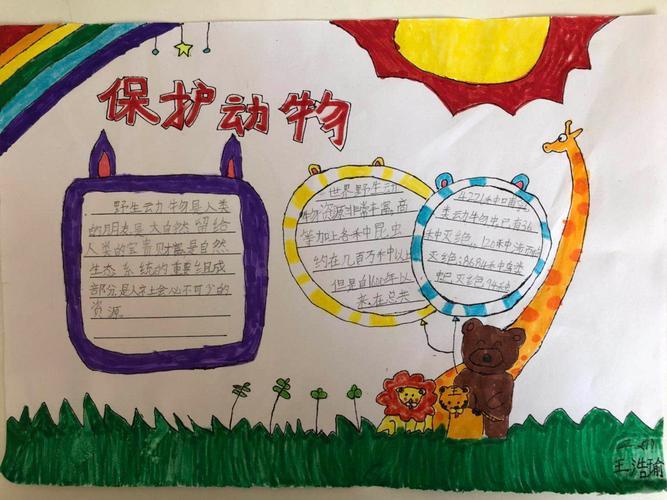 保护动物
野生动物是人类
的朋友是大自然留给
人类的宝贵财富是自然
生态系统的重要组成
部分是人社会必不可少的
资源
世界野生动
物资源非常丰富,高
等加上各种昆虫
约在几百万种以上
但是自1600年以
来,在总共
4221种
类动物中已有36
种灭绝。120种
灭绝:8684种
灭绝94种
王浩瑜